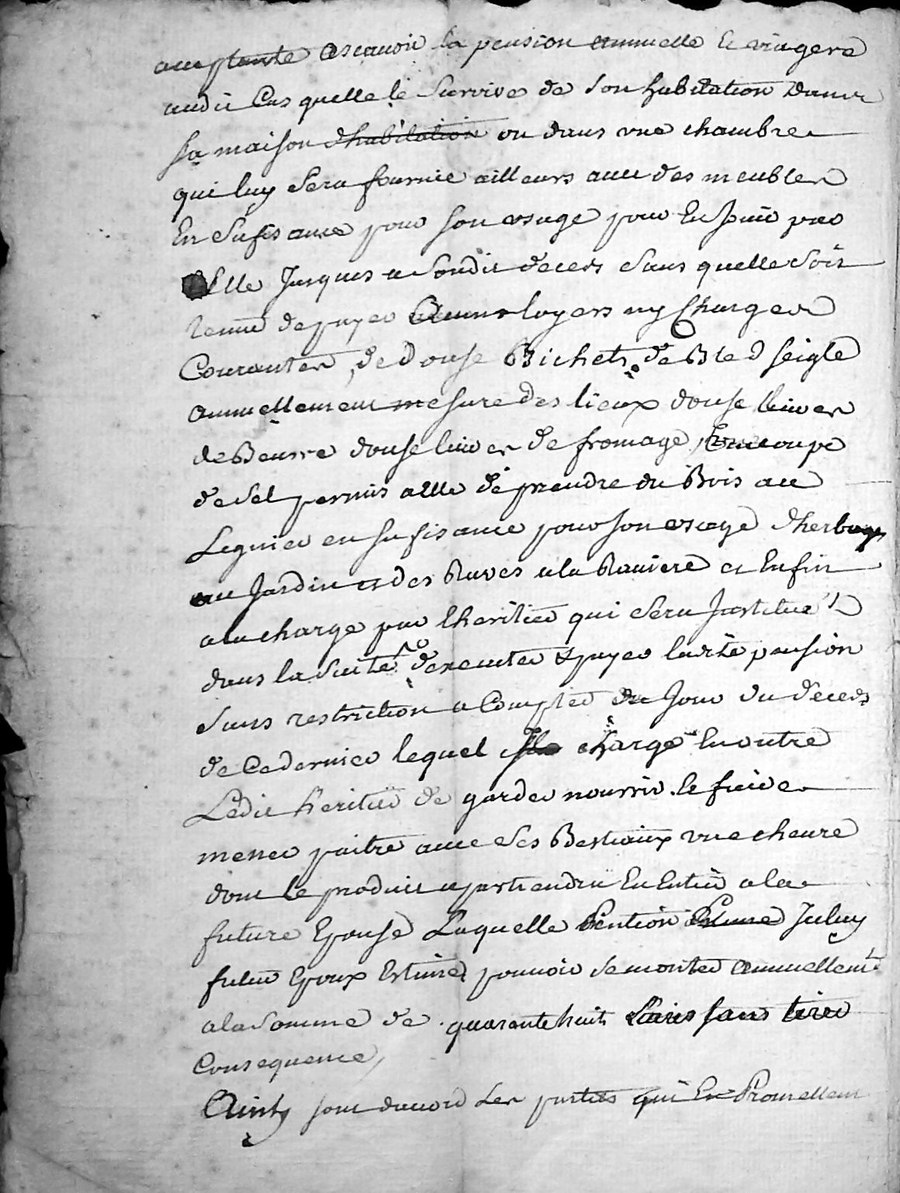 acceptante ascavoir la pension annuelle et viagere
audit Cas quelle le Survive de son habitation dans
sa maison d'habitation ou dans une chambre
qui luy sera fournie ailleurs avec des meubles
En Sufisance pour son usage pour En Jouir par
Elle Jusques a sondit deces sans quelle soit
tenue de payer Aucuns loyers ny Charges
Courantes, de Douse Bichets de Bled seigle
annuellement mesure des lieux douse livres
de Beurre douse livres de fromage, Une coupe
de sel permis a Elle de prendre du Bois au
Legnier en sufisance pour son usage d'herbages
au Jardin et des Raves a la Raviere et Enfin
a la charge par l'heritier qui sera Institué
dans la Suitte d'executer & payer ladte pension
sans restriction a Compter du Jour du deces
de Ce dernier lequel charge En outre
Ledit heritier de garder nourrir le faire
mener paitre avec ses Bestiaux une cheure
dont le produit apartiendra En Entier a la
future Epouse Laquelle Pention Iceluy
futur Epoux Estime pouvoir se monter annuellemt
a la somme de quarante huit Livres sans tirer
Consequence,
Ainsy sont d'acord les parties qui En Promettent